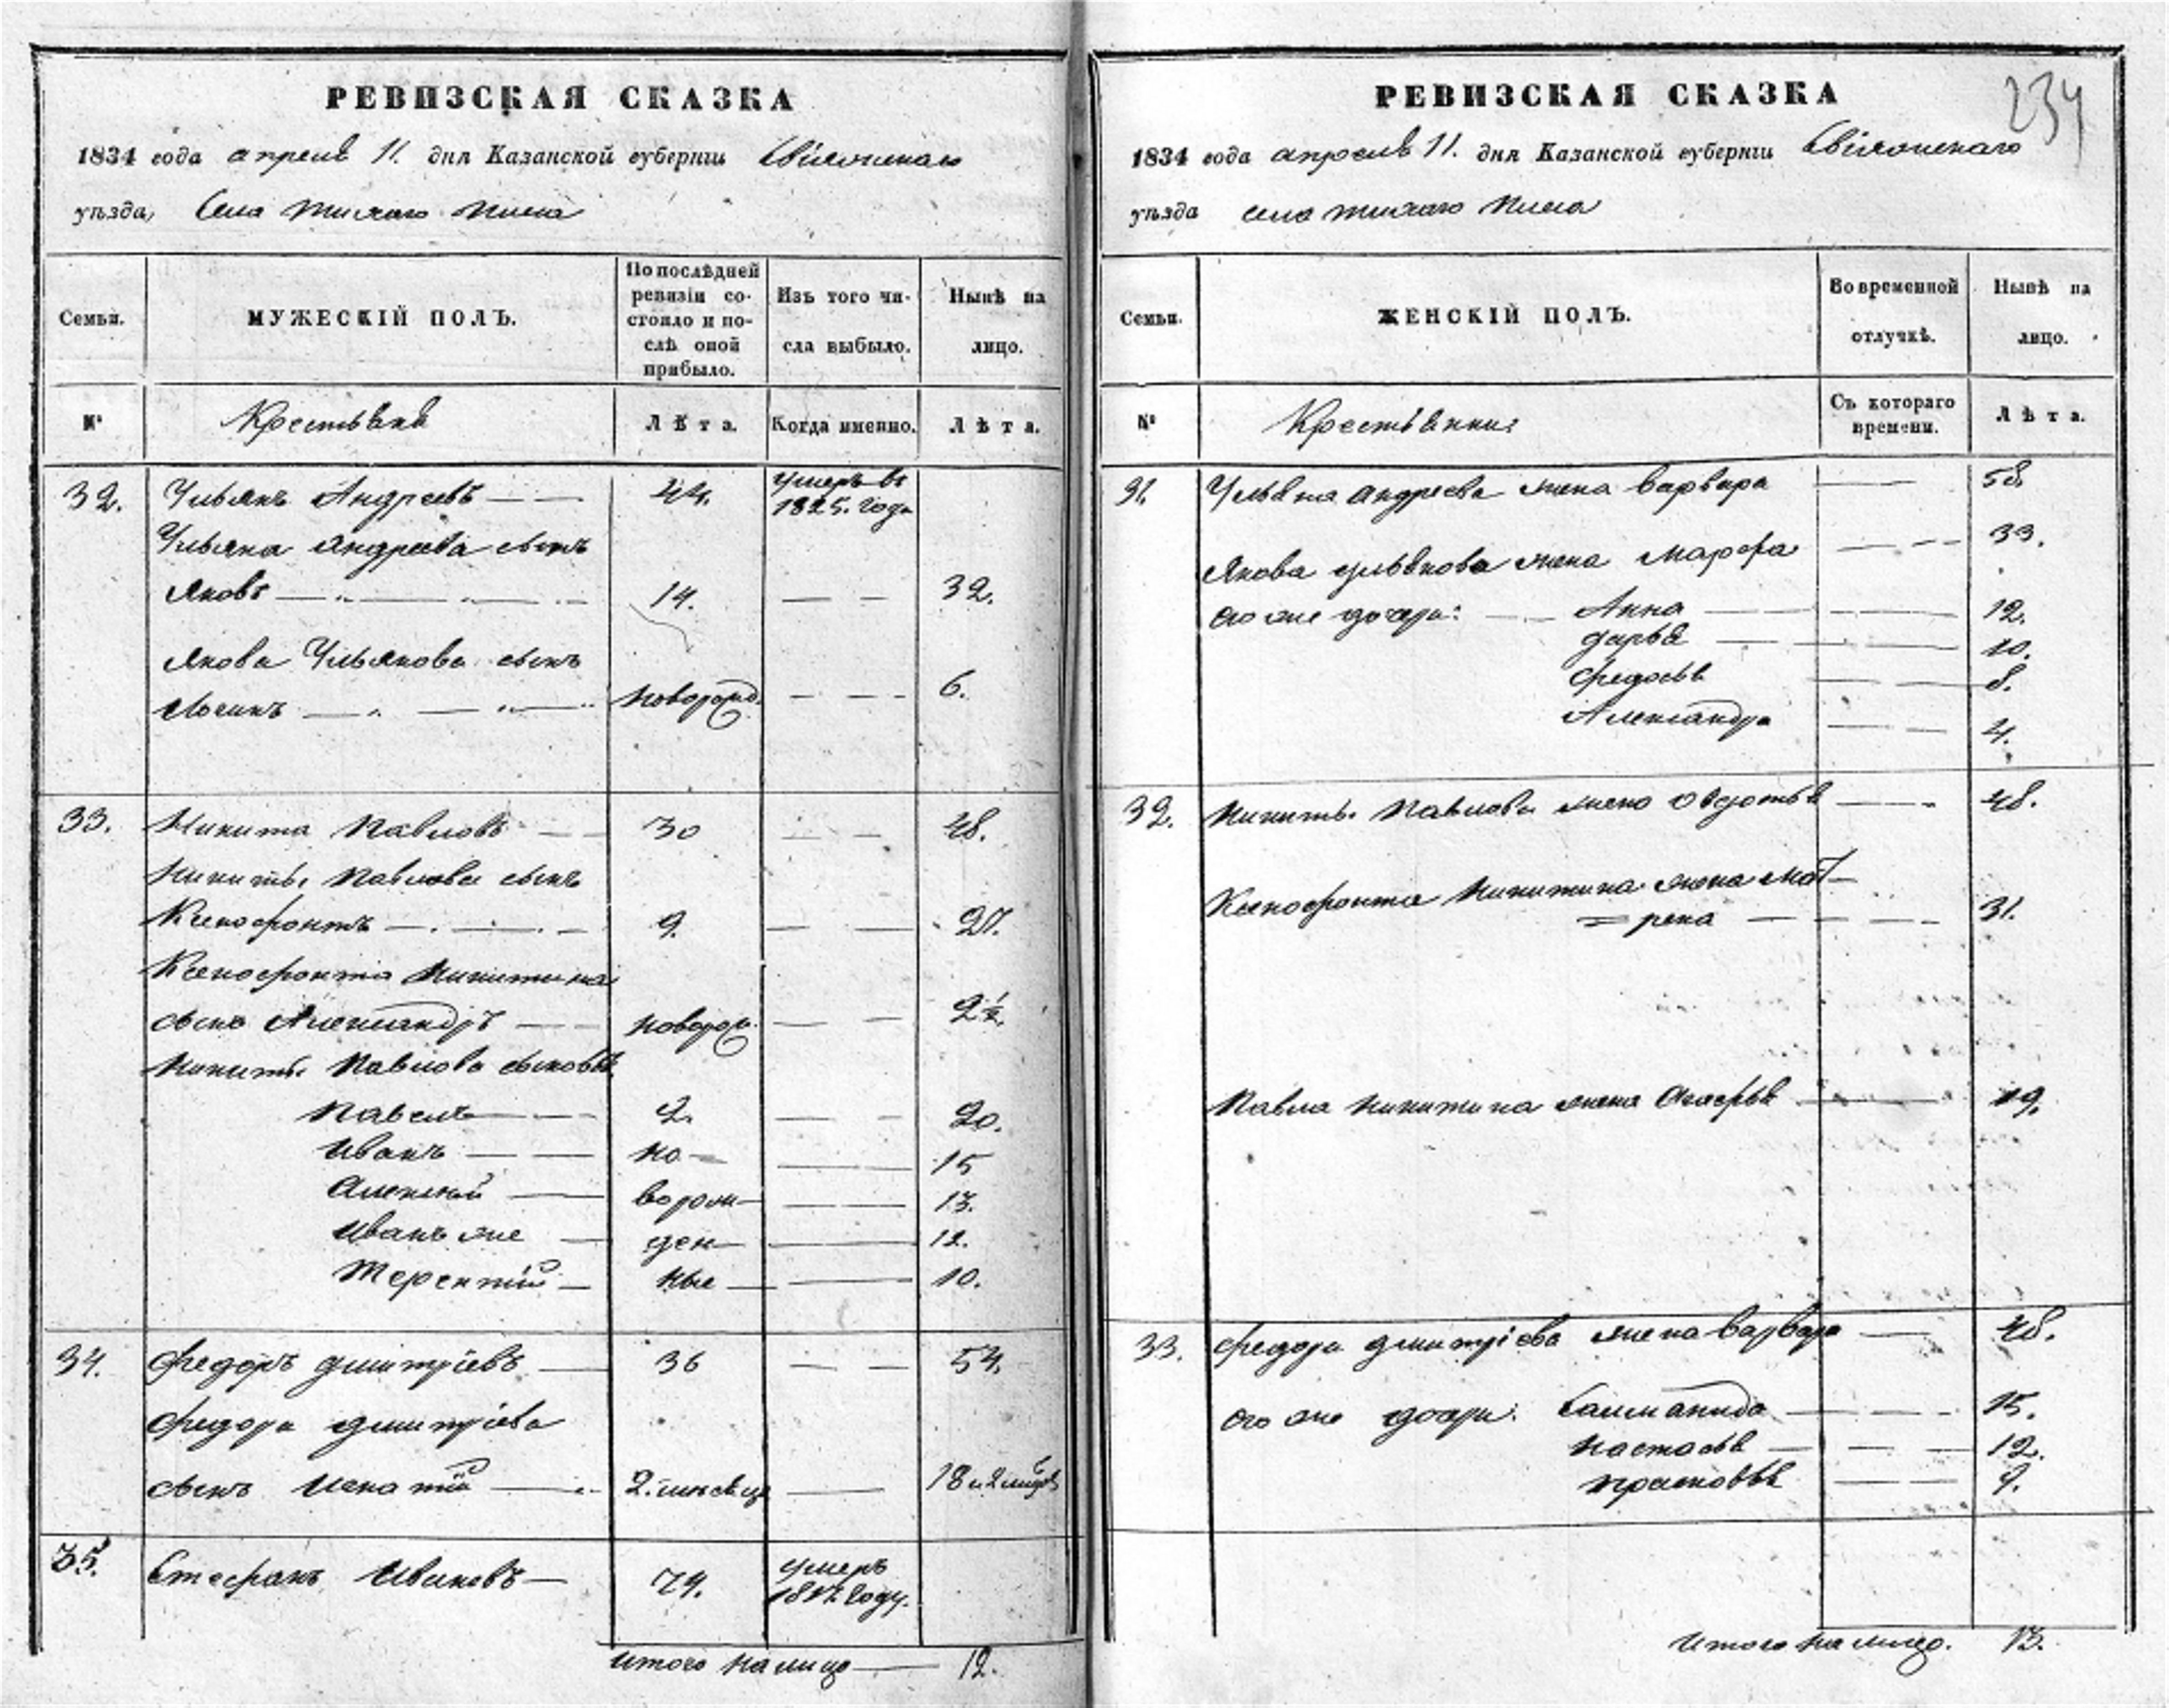 РЕВИЗСКАЯ СКАЗКА
1834 года апреля 11. дня Казанской губернiи Свiяжскаго
уѣзда, Села Тихаго Плеса
Семьи.
МУЖЕСКIЙ ПОЛЪ.
По послѣдней
ревизiи со-
стояло и по-
слѣ оной
прибыло.
Изъ того чи-
сла выбыло.
Нынѣ на
лицо.
№
Крестьяне
Лѣта.
Когда именно.
Лѣта.
32. Ульянъ Андреевъ 44. умеръ въ
1825. года
Ульяна Андреева сынъ
Яковъ 14. 32.
Якова Ульянова сынъ
Логинъ новорожд. 6.
33. Никита Павловъ 30 48.
Никиты Павлова сынъ
Ксенофонтъ 9. 27.
Ксенофонта Никитина
сынъ Александръ новорож. 2½.
Никиты Павлова сыновья
Павелъ 2. 20.
Иванъ но- 15
Алексей ворож- 13.
Иванъ же ден- 12.
Терентiй ные 10.
34. Федоръ Дмитрiевъ 36 54.
Федора Дмитрiева
сынъ Игнатiй 2. месяца 18 и 2 месяц
35. Стефанъ Ивановъ 79. умеръ
году.
Итого на лицо 12.
РЕВИЗСКАЯ СКАЗКА
234
1834 года апреля 11. дня Казанской губернiи Свiяжскаго
уѣзда села Тихаго Плеса
Семьи.
ЖЕНСКIЙ ПОЛЪ.
Во временной
отлучкѣ.
Нынѣ на
лицо.
№
Крестьянки:
Съ котораго
времени.
Лѣта.
31. Ульяна Андреева жена Варвара 58.
Якова Ульянова жена Марфа 33.
его же дочери: Анна 12.
Дарья 10.
Федосья 8.
Александра 4.
32. Никиты Павлова жена Овдотья 48.
Ксенофонта Никитина жена Мат-
=рена 31.
Павла Никитина жена Агафья 19.
33. Федора Дмитрiева жена Варвара 48.
его же дочери: Саломанида 15.
Настасья 12.
Прасковья 9.
Итого на лицо. 13.